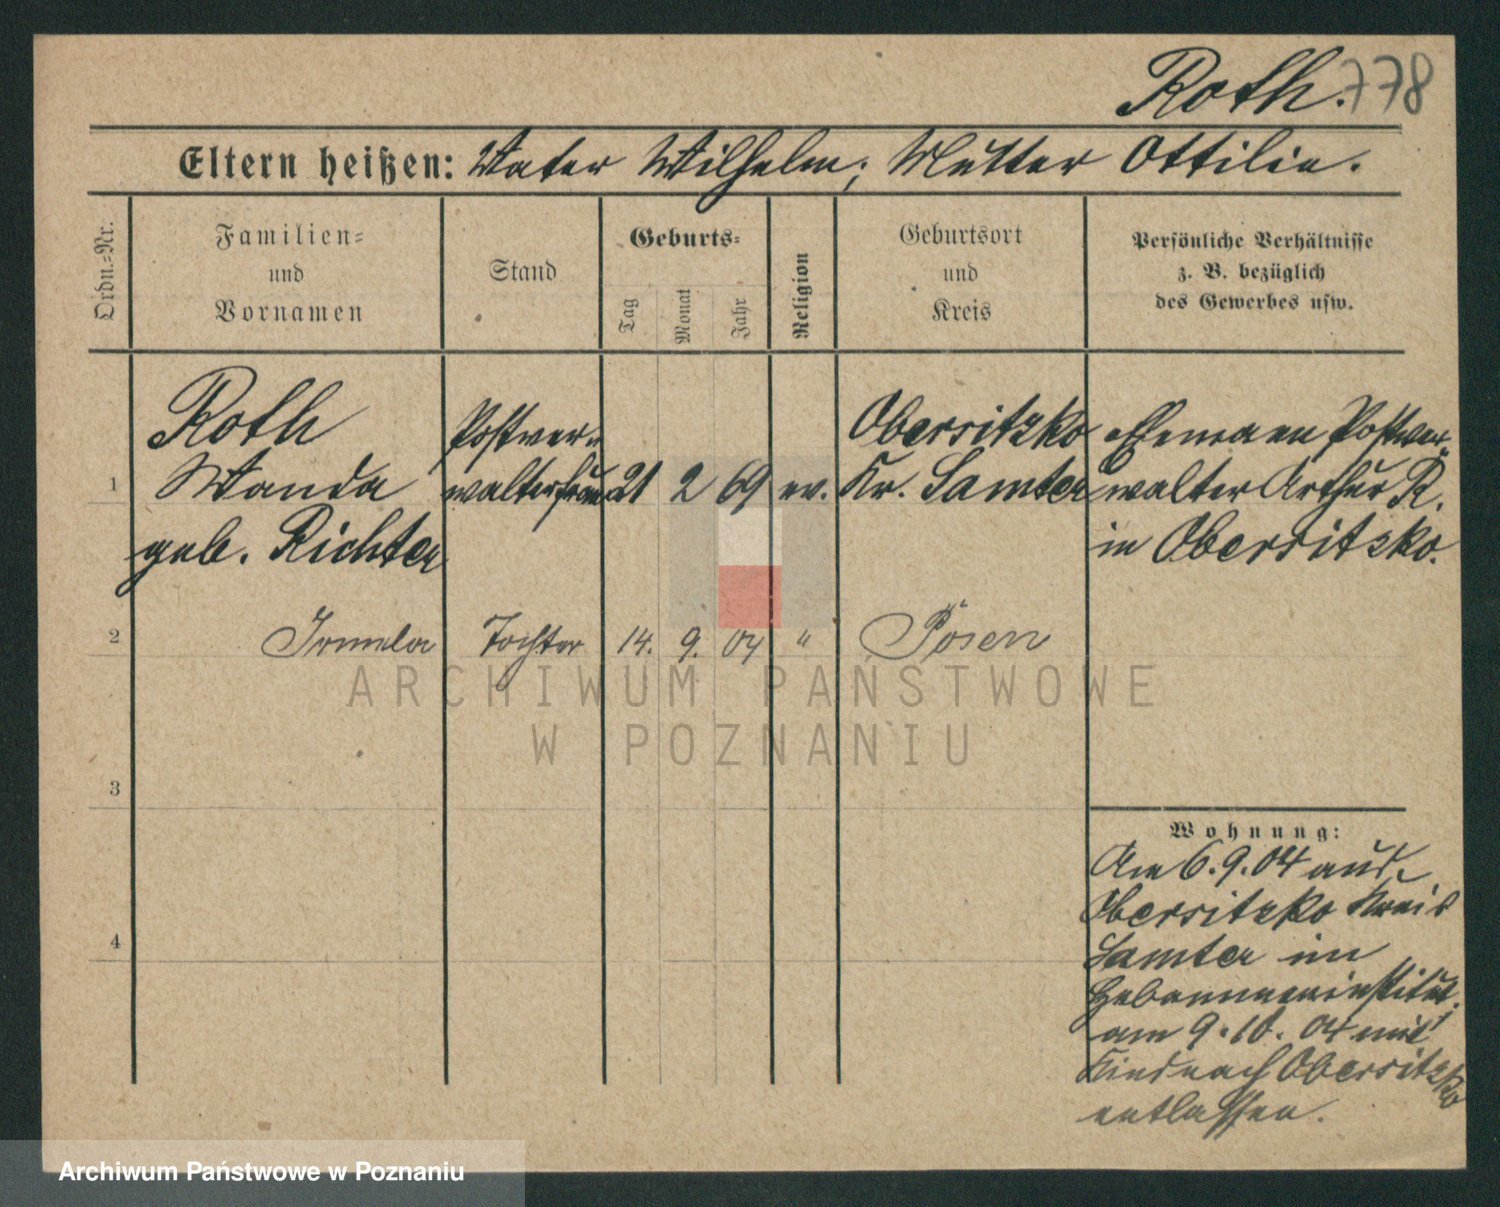 Roth. 778
Eltern heißen: Vater Wilhelm; Mutter Ottilie.
Ordn.-Nr.
Familien-
und
Vornamen
Stand
Geburts-
Tag
Monat
Jahr
Religion
Geburtsort
und
Kreis
Persönliche Verhältnisse
z. B. bezüglich
des Gewerbes usw.
1
Roth
Wanda
geb. Richter
Postver-
walterfrau
21 2 69 ev.
Obersitzko
Kr. Samter
Ehemann Postver-
walter Arthur R.
in Obersitzko.
2 Irmela Tochter 14. 9. 04 " Posen
3
4
Wohnung:
Am 6.9.04 aus
Obersitzko Kreis
Samter im
Hebammeninstitut.
am 9.10.04 mit
Kind nach Obersitzko
entlassen.
ARCHIWUM PAŃSTWOWE
W POZNANIU
Archiwum Państwowe w Poznaniu